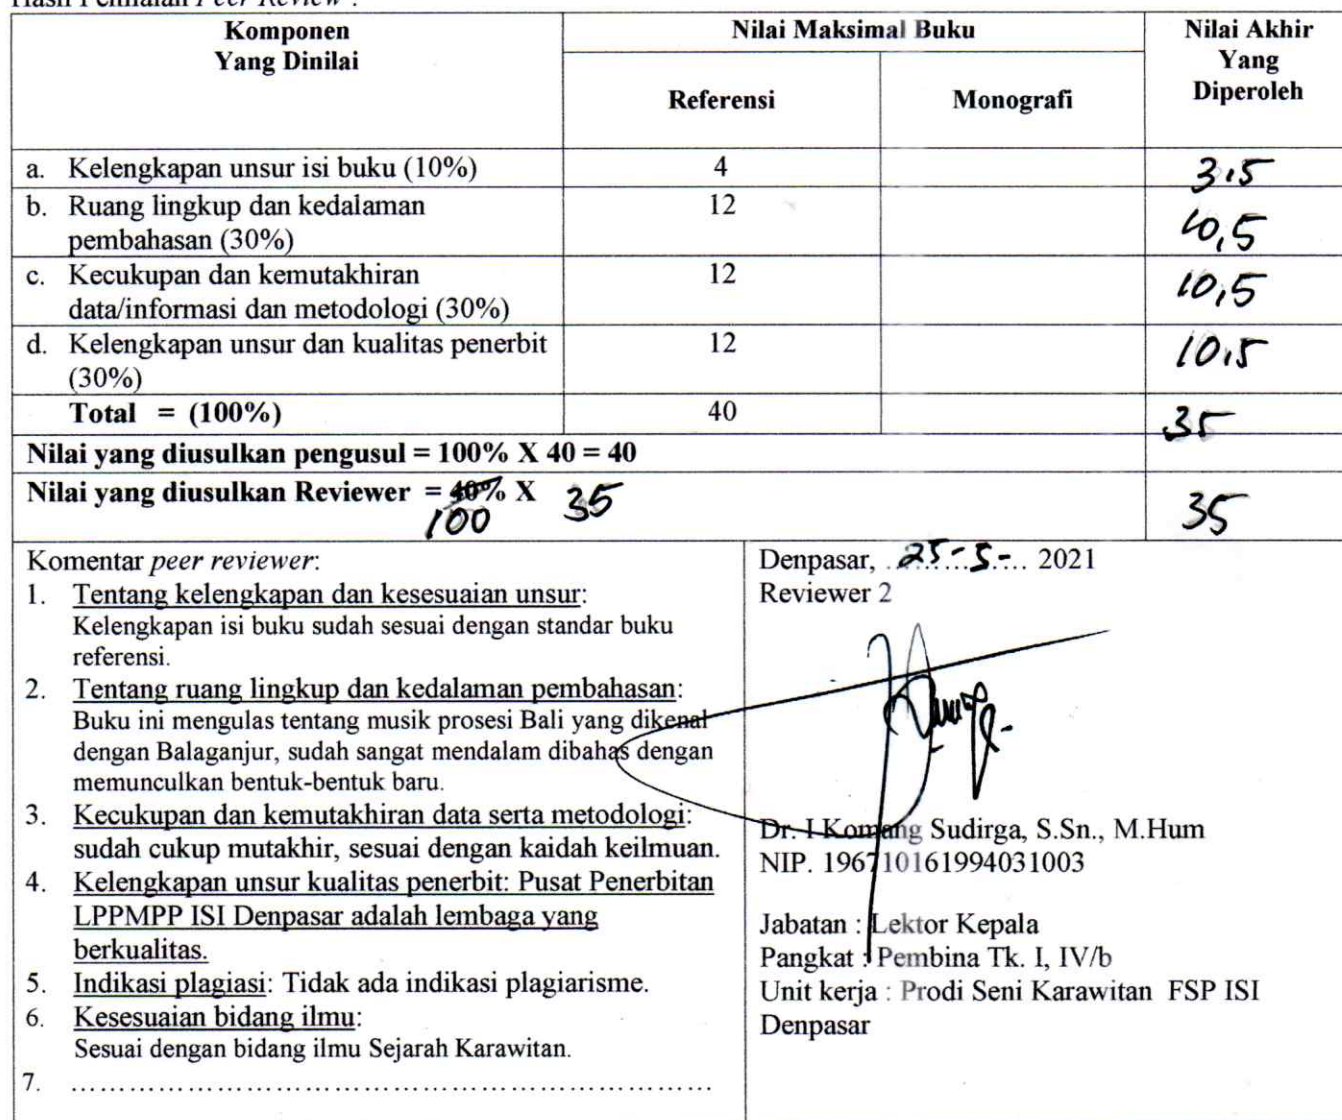 Hasil Penilaian Peer Review :
Komponen Yang Dinilai
Nilai Maksimal Buku
Nilai Akhir Yang Diperoleh
Referensi
Monografi
a. Kelengkapan unsur isi buku (10%) 4 3,5
b. Ruang lingkup dan kedalaman pembahasan (30%) 12 10,5
c. Kecukupan dan kemutakhiran data/informasi dan metodologi (30%) 12 10,5
d. Kelengkapan unsur dan kualitas penerbit (30%) 12 10,5
Total = (100%) 40 35
Nilai yang diusulkan pengusul = 100% X 40 = 40
Nilai yang diusulkan Reviewer = 40% X 35 35
100
Komentar peer reviewer:
1. Tentang kelengkapan dan kesesuaian unsur:
Kelengkapan isi buku sudah sesuai dengan standar buku
referensi.
2. Tentang ruang lingkup dan kedalaman pembahasan:
Buku ini mengulas tentang musik prosesi Bali yang dikenal
dengan Balaganjur, sudah sangat mendalam dibahas dengan
memunculkan bentuk-bentuk baru.
3. Kecukupan dan kemutakhiran data serta metodologi:
sudah cukup mutakhir, sesuai dengan kaidah keilmuan.
4. Kelengkapan unsur kualitas penerbit: Pusat Penerbitan
LPPMPP ISI Denpasar adalah lembaga yang
berkualitas.
5. Indikasi plagiasi: Tidak ada indikasi plagiarisme.
6. Kesesuaian bidang ilmu:
Sesuai dengan bidang ilmu Sejarah Karawitan.
7. ..............................................................
Denpasar, 25-5- 2021
Reviewer 2
Dr. I Komang Sudirga, S.Sn., M.Hum
NIP. 196710161994031003
Jabatan : Lektor Kepala
Pangkat : Pembina Tk. I, IV/b
Unit kerja : Prodi Seni Karawitan FSP ISI
Denpasar